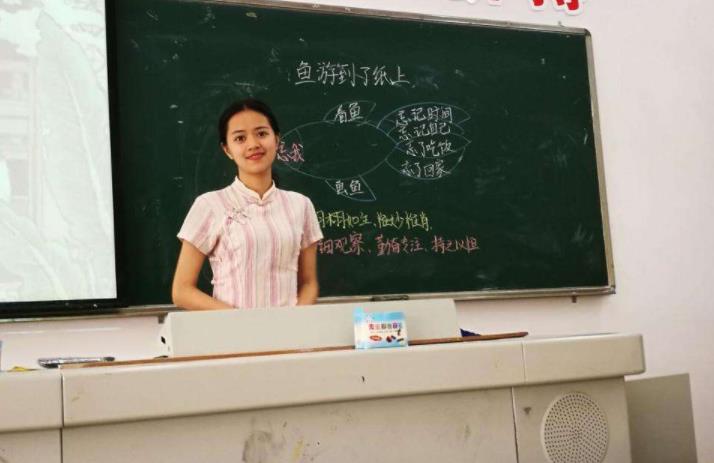 鱼游到了纸上
看鱼
忘记时间
忘记自己
忘了吃饭
忘了回家
忘我
画鱼
栩栩如生、惟妙惟肖
细观察、勤奋专注、持之以恒